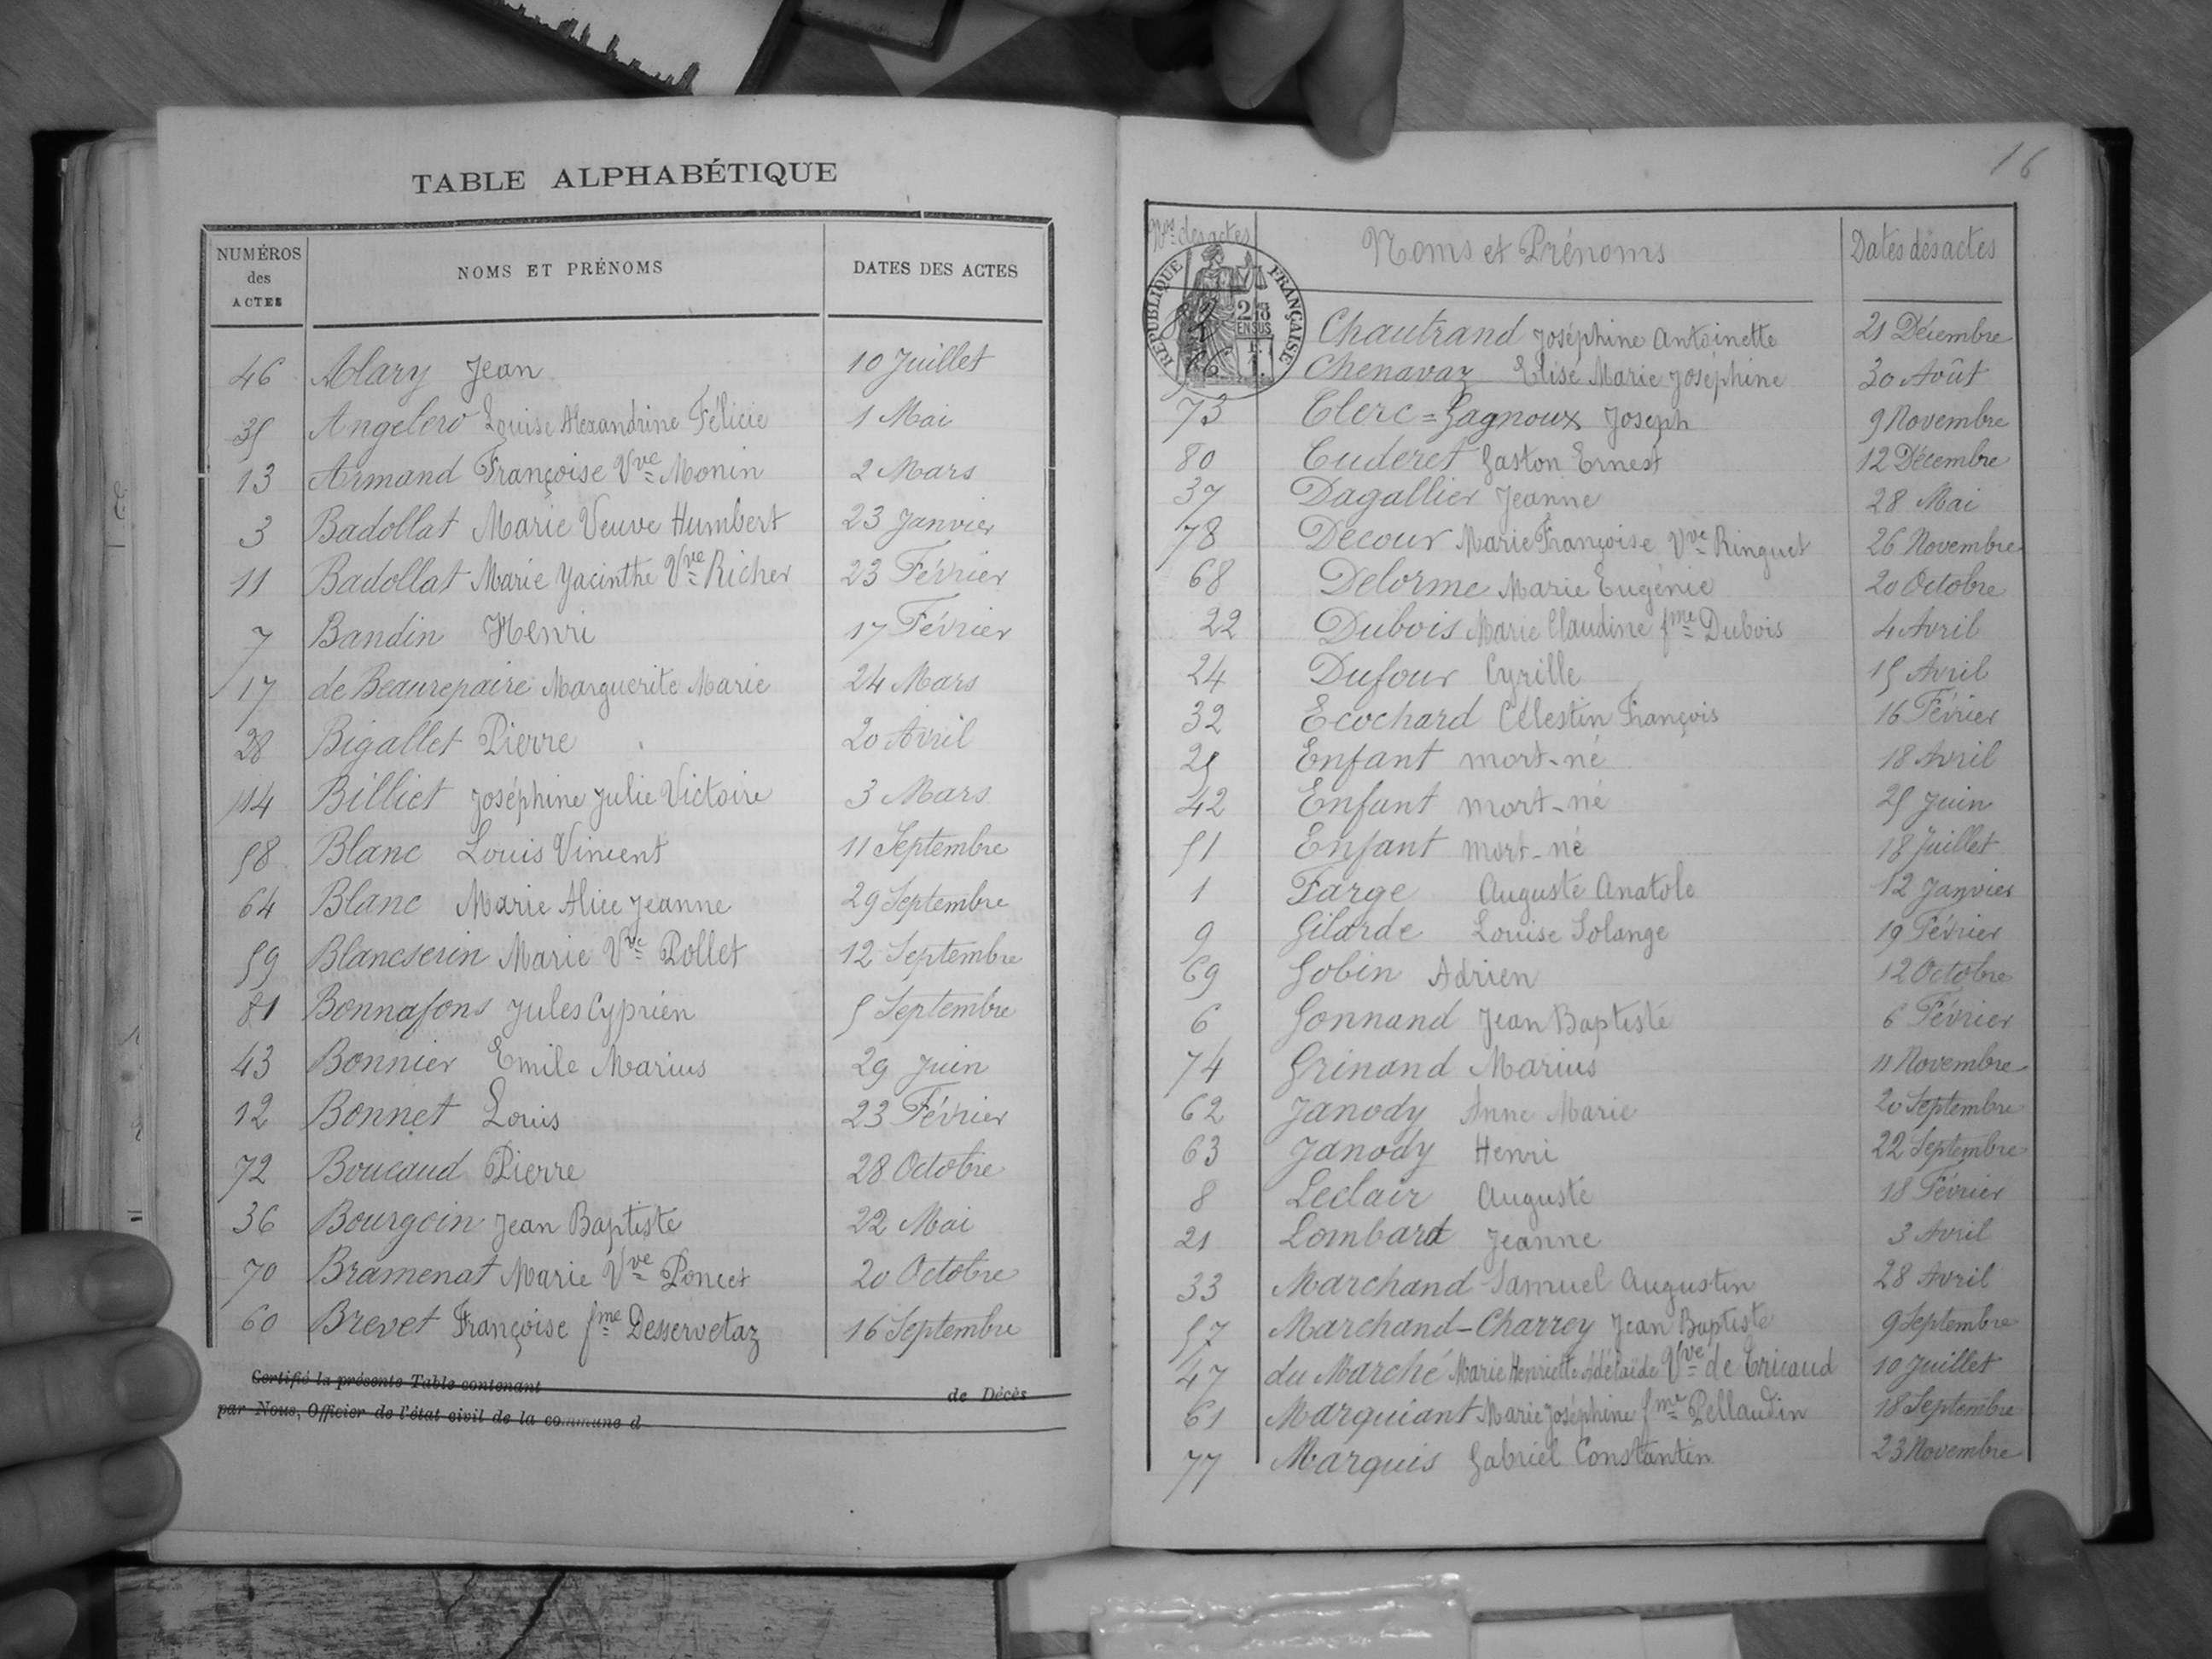 TABLE ALPHABÉTIQUE
NUMÉROS des ACTES NOMS ET PRÉNOMS DATES DES ACTES
46 Alary Jean 10 Juillet
35 Angelero Louise Alexandrine Félicie 1 Mai
13 Armand Françoise Vve Monin 2 Mars
3 Badollat Marie Veuve Humbert 23 Janvier
11 Badollat Marie Yacinthe Vve Richer 23 Février
7 Bandin Henri 17 Février
17 de Beaurepaire Marguerite Marie 24 Mars
28 Bigallet Pierre 20 Avril
14 Billiet Joséphine Julie Victoire 3 Mars
58 Blanc Louis Vincent 11 Septembre
64 Blanc Marie Alice Jeanne 29 Septembre
59 Blancserin Marie Vve Pollet 12 Septembre
81 Bonnafons Jules Cyprien 5 Septembre
43 Bonnier Emile Marius 29 Juin
12 Bonnet Louis 23 Février
72 Boucaud Pierre 28 Octobre
36 Bourgoin Jean Baptiste 22 Mai
70 Bramenat Marie Vve Poncet 20 Octobre
60 Brevet Françoise fme Desservetaz 16 Septembre
Certifié la présente Table contenant de Décès
par Nous, Officier de l'état civil de la commune d
16
Nos des actes Noms et Prénoms Dates des actes
RÉPUBLIQUE FRANÇAISE
82 Chautrand Joséphine Antoinette 21 Décembre
Chenavaz Elise Marie Joséphine 30 Août
73 Clerc=Gagnoux Joseph 9 Novembre
80 Cuderet Gaston Ernest 12 Décembre
37 Dagallier Jeanne 28 Mai
78 Decour Marie Françoise Vve Ringuet 26 Novembre
68 Delorme Marie Eugénie 20 Octobre
22 Dubois Marie Claudine fme Dubois 4 Avril
24 Dufour Cyrille 15 Avril
32 Ecochard Célestin François 16 Février
25 Enfant mort-né 18 Avril
42 Enfant mort-né 25 Juin
51 Enfant mort-né 18 Juillet
1 Farge Auguste Anatole 12 Janvier
9 Gilarde Louise Solange 19 Février
69 Gobin Adrien 12 Octobre
6 Gonnand Jean Baptiste 6 Février
74 Grinand Marius 11 Novembre
62 Janody Anne Marie 20 Septembre
63 Janody Henri 22 Septembre
8 Leclair Auguste 18 Février
21 Lombard Jeanne 3 Avril
33 Marchand Samuel Augustin 28 Avril
57 Marchand-Charrey Jean Baptiste 9 Septembre
47 du Marché Marie Henriette Adélaïde Vve de Tricaud 10 Juillet
61 Marquiant Marie Joséphine fme Pellaudin 18 Septembre
77 Marquis Gabriel Constantin 23 Novembre